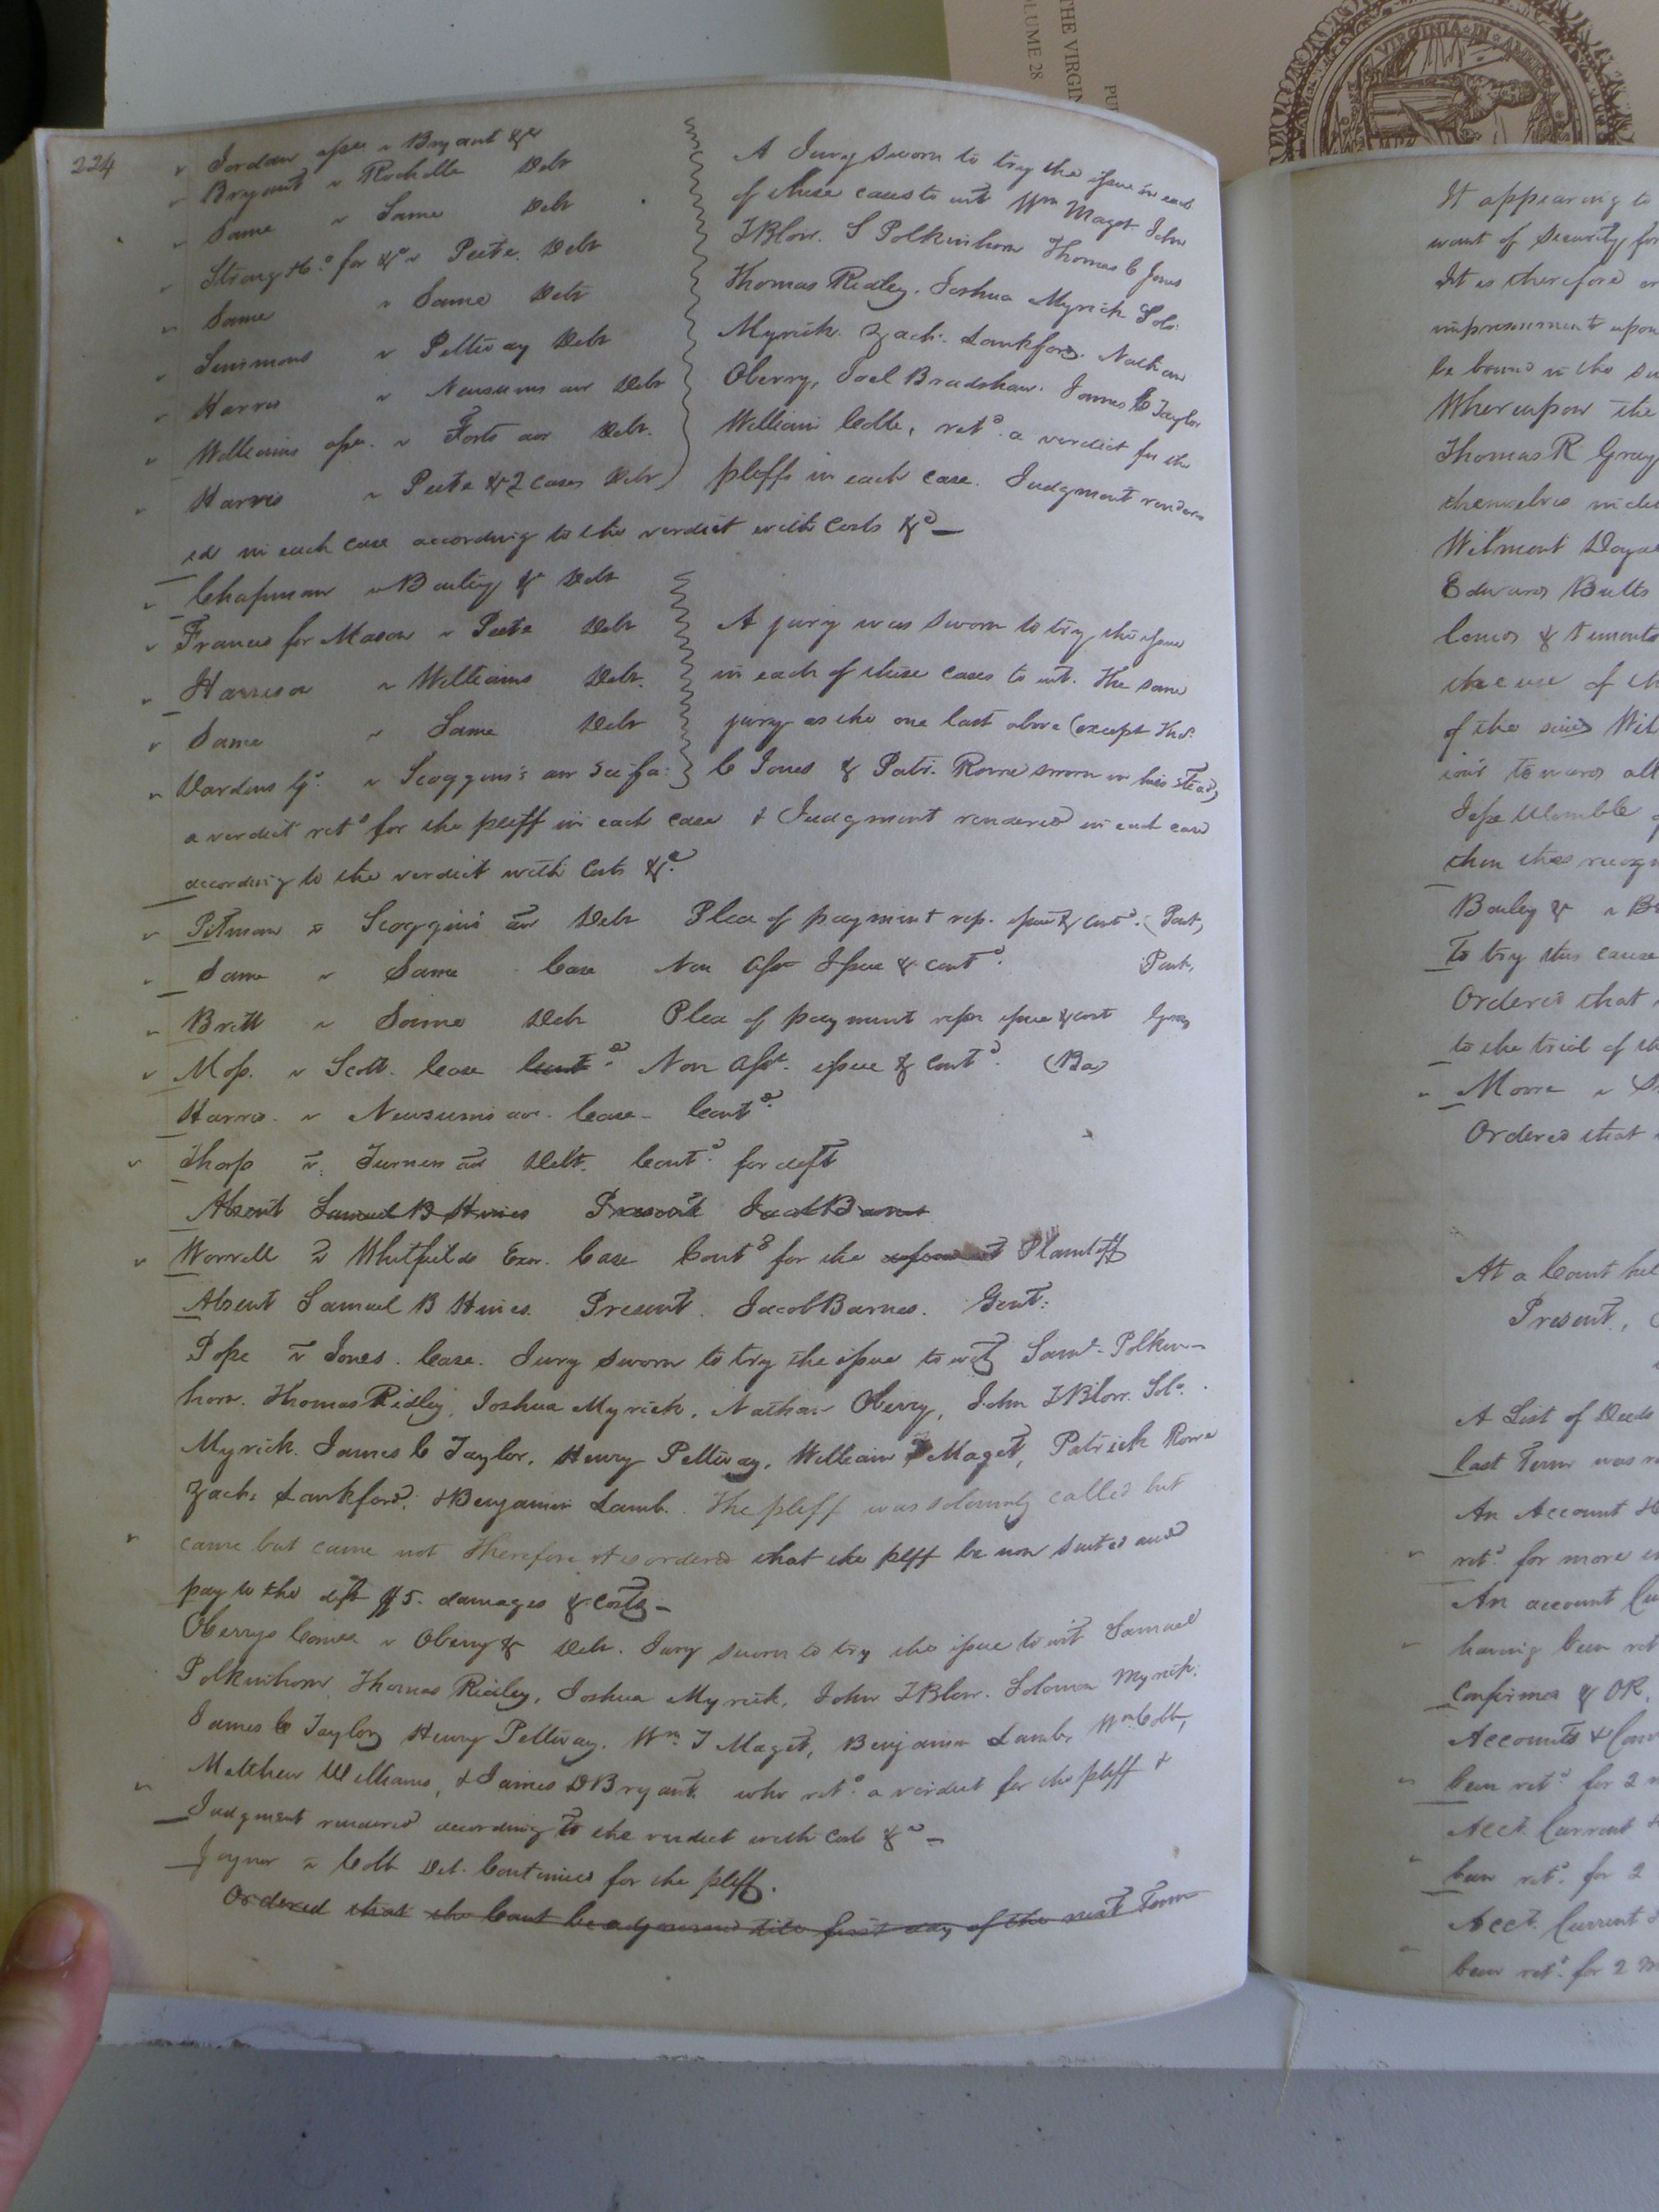 THE VIRGIN
VOLUME 28
PU
VIRGINIA IN AMERI
224
Jordan assee v Bryant &c
Bryant v Rochelle Debt
Same v Same Debt
Strong Ho.d for &c v Peete. Debt
Same v Same Debt
Simmons v Pettway Debt
Harris v Newsums adr Debt
Williams assee. v Forts adr Debt.
Harris v Peete &c 2 cases Debt
A Jury sworn to try the issue in each
of these causes to wit Wm Maget John
T Blow. S Polkinhorn Thomas C Jones
Thomas Ridley. Joshua Myrick Solo.
Myrick. Zach: Lankford. Nathan
Oberry, Joel Bradshaw. James C Taylor
William Cobb, retd. a verdict for the
pltffs in each case. Judgment render-
ed in each case according to the verdict with Costs &c —
Chapman v Bailey &c Debt
Francis for Mason v Peete Debt
Harrison v Williams Debt.
Same v Same Debt
Vardens Gd. v Scoggins's adr Sci fa:
A jury was sworn to try the issue
in each of these cases to wit. The same
jury as the one last above (except Thos.
C Jones & Patr. Rowe sworn in his stead)
a verdict retd for the pltff in each case & Judgment rendered in each case
according to the verdict with Costs &c.
Pitman v Scoggins adr Debt Plea of payment rep. issue & contd. (Park)
Same v Same Case Non Asst Issue & contd. Park.
Britt v Same Debt Plea of payment repn issue & cont Gray
Moss. v Scott. Case Contd. Non Asst. issue & Contd. (Ba)
Harris. v Newsums adr. Case - Contd.
Thorp v. Turners adr Debt. Contd. for deft
Absent Samuel B Hines Present Jacob Barnes
Worrell v Whitfields Exor. Case Contd for the defendant Plaintiff
Absent Samuel B Hines. Present. Jacob Barnes. Gent:
Pope v Jones. Case. Jury sworn to try the issue to wit Saml. Polkin-
horn. Thomas Ridley, Joshua Myrick, Nathan Oberry, John T Blow. Solo.
Myrick. James C Taylor, Henry Pettway, William T Maget, Patrick Rowe
Zach: Lankford, & Benjamin Lamb. The pltff was solemnly called but
came but came not Therefore it is ordered that the pltff be non suited and
pay to the deft $5. damages & costs —
Oberrys Comee v Oberry &c Debt. Jury sworn to try the issue to wit Samuel
Polkinhorn, Thomas Ridley, Joshua Myrick, John T Blow. Solomon Myrick.
James C Taylor, Henry Pettway. Wm. T Maget, Benjamin Lamb, Wm. Cobb,
Matthew Williams, & James D Bryant, who retd. a verdict for the pltff &
Judgment rendered according to the verdict with Costs &c —
Joyner v Cobb Det. Continued for the pltff.
Ordered that the Court be adjourned till first day of the next Term
It appearing to
want of Security for
It is therefore or
imprisonment upon
be bound in the su
Whereupon the
Thomas R Gray
themselves inde
Wilmont Doyal
Edward Butts
lands & tenements
the use of th
of the said Wil
iour towards all
Jesse Womble
then this recogn
Bailey & v B
To try this cause
Ordered that
to the trial of th
Moore v
Ordered that
At a Court hel
Present,
A List of Deeds
last Term was r
An Account
retd. for more
An account Cu
having been ret
Confirmed & OR.
Accounts
been retd. for 2 m
Acct. Current
been retd. for 2
Acct. Current
been retd. for 2 m